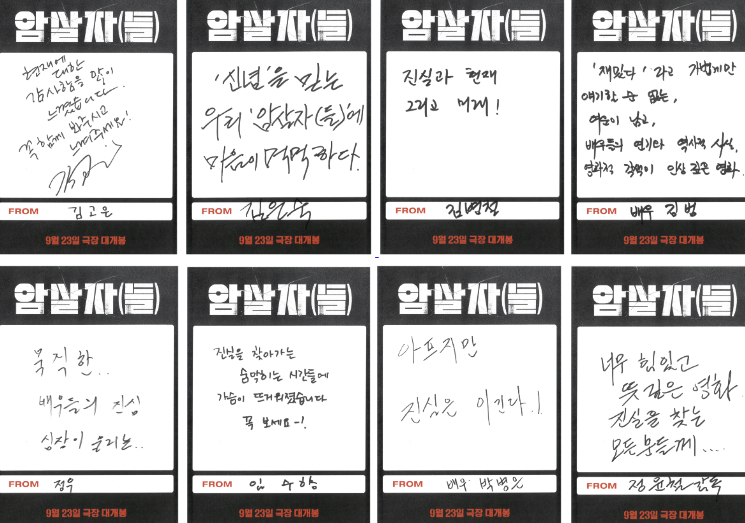 암살자(들)
현재에
대한
감사함을 많이
느꼈습니다.
꼭 함께 봐주시고
느껴주세요!
FROM 김고은
9월 23일 극장 대개봉
암살자(들)
'신념'을 믿는
우리 '암살자(들)'에
마음이 먹먹하다.
FROM 김은숙
9월 23일 극장 대개봉
암살자(들)
진실과 현재
그리고 미래!
FROM
9월 23일 극장 대개봉
암살자(들)
'재밌다' 라고 가볍게만
얘기할 수 없는,
여운이 남고,
배우들의 연기와 역사적 사실,
영화적 각색이 인상 깊은 영화.
FROM 배우 김범
9월 23일 극장 대개봉
암살자(들)
묵직한..
배우들의 진심
심장이 울리는..
FROM 정우
9월 23일 극장 대개봉
암살자(들)
진실을 찾아가는
숨막히는 시간들에
가슴이 뜨거워졌습니다
꼭 보세요~!
FROM 임수향
9월 23일 극장 대개봉
암살자(들)
아프지만
진심은 이긴다.!
FROM 배우 박병은
9월 23일 극장 대개봉
암살자(들)
너무 힘있고
뜻깊은 영화
진실을 찾는
모든 분들께....
FROM 정윤철감독
9월 23일 극장 대개봉